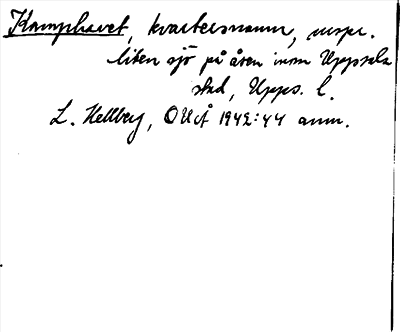 Kamphavet, kvartersnamn, urspr.
liten sjö på åsen inom Uppsala
stad, Upps. l.
L. Hellberg, OUÅ 1942:44 anm.